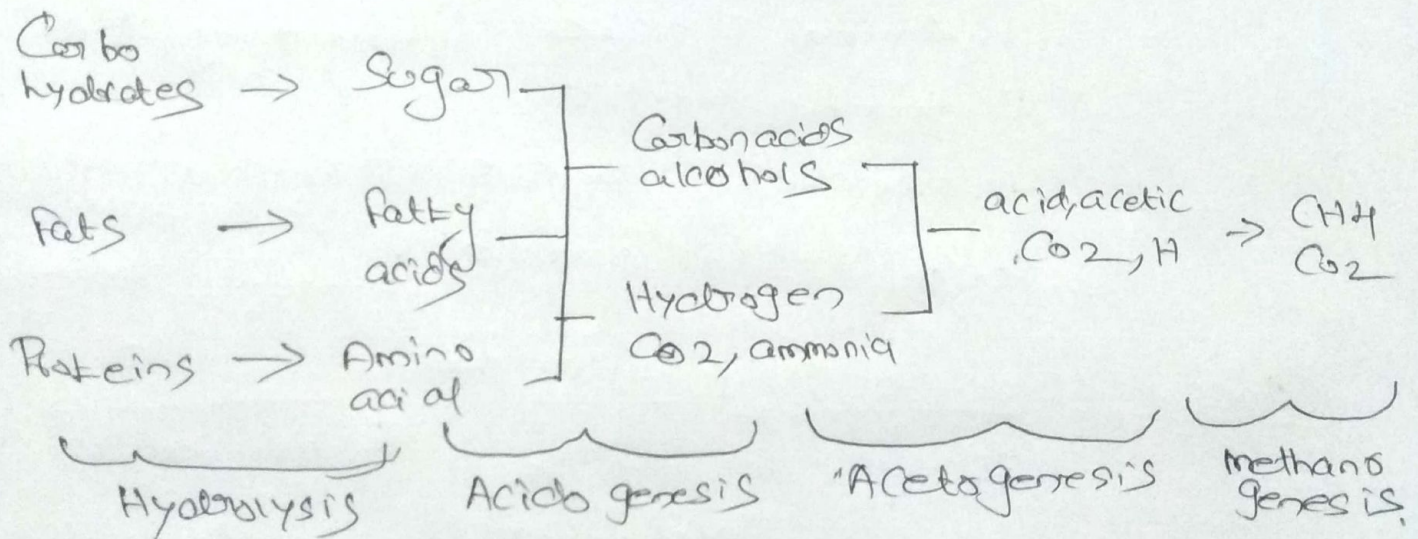 Carbo
hydrates → Sugar
Fats → Fatty
acids
Proteins → Amino
acid
Carbon acids
alcohols
Hydrogen
CO2, ammonia
acid, acetic
CO2, H → CH4
CO2
Hydrolysis
Acido genesis
Aceto genesis
Methano
genesis.